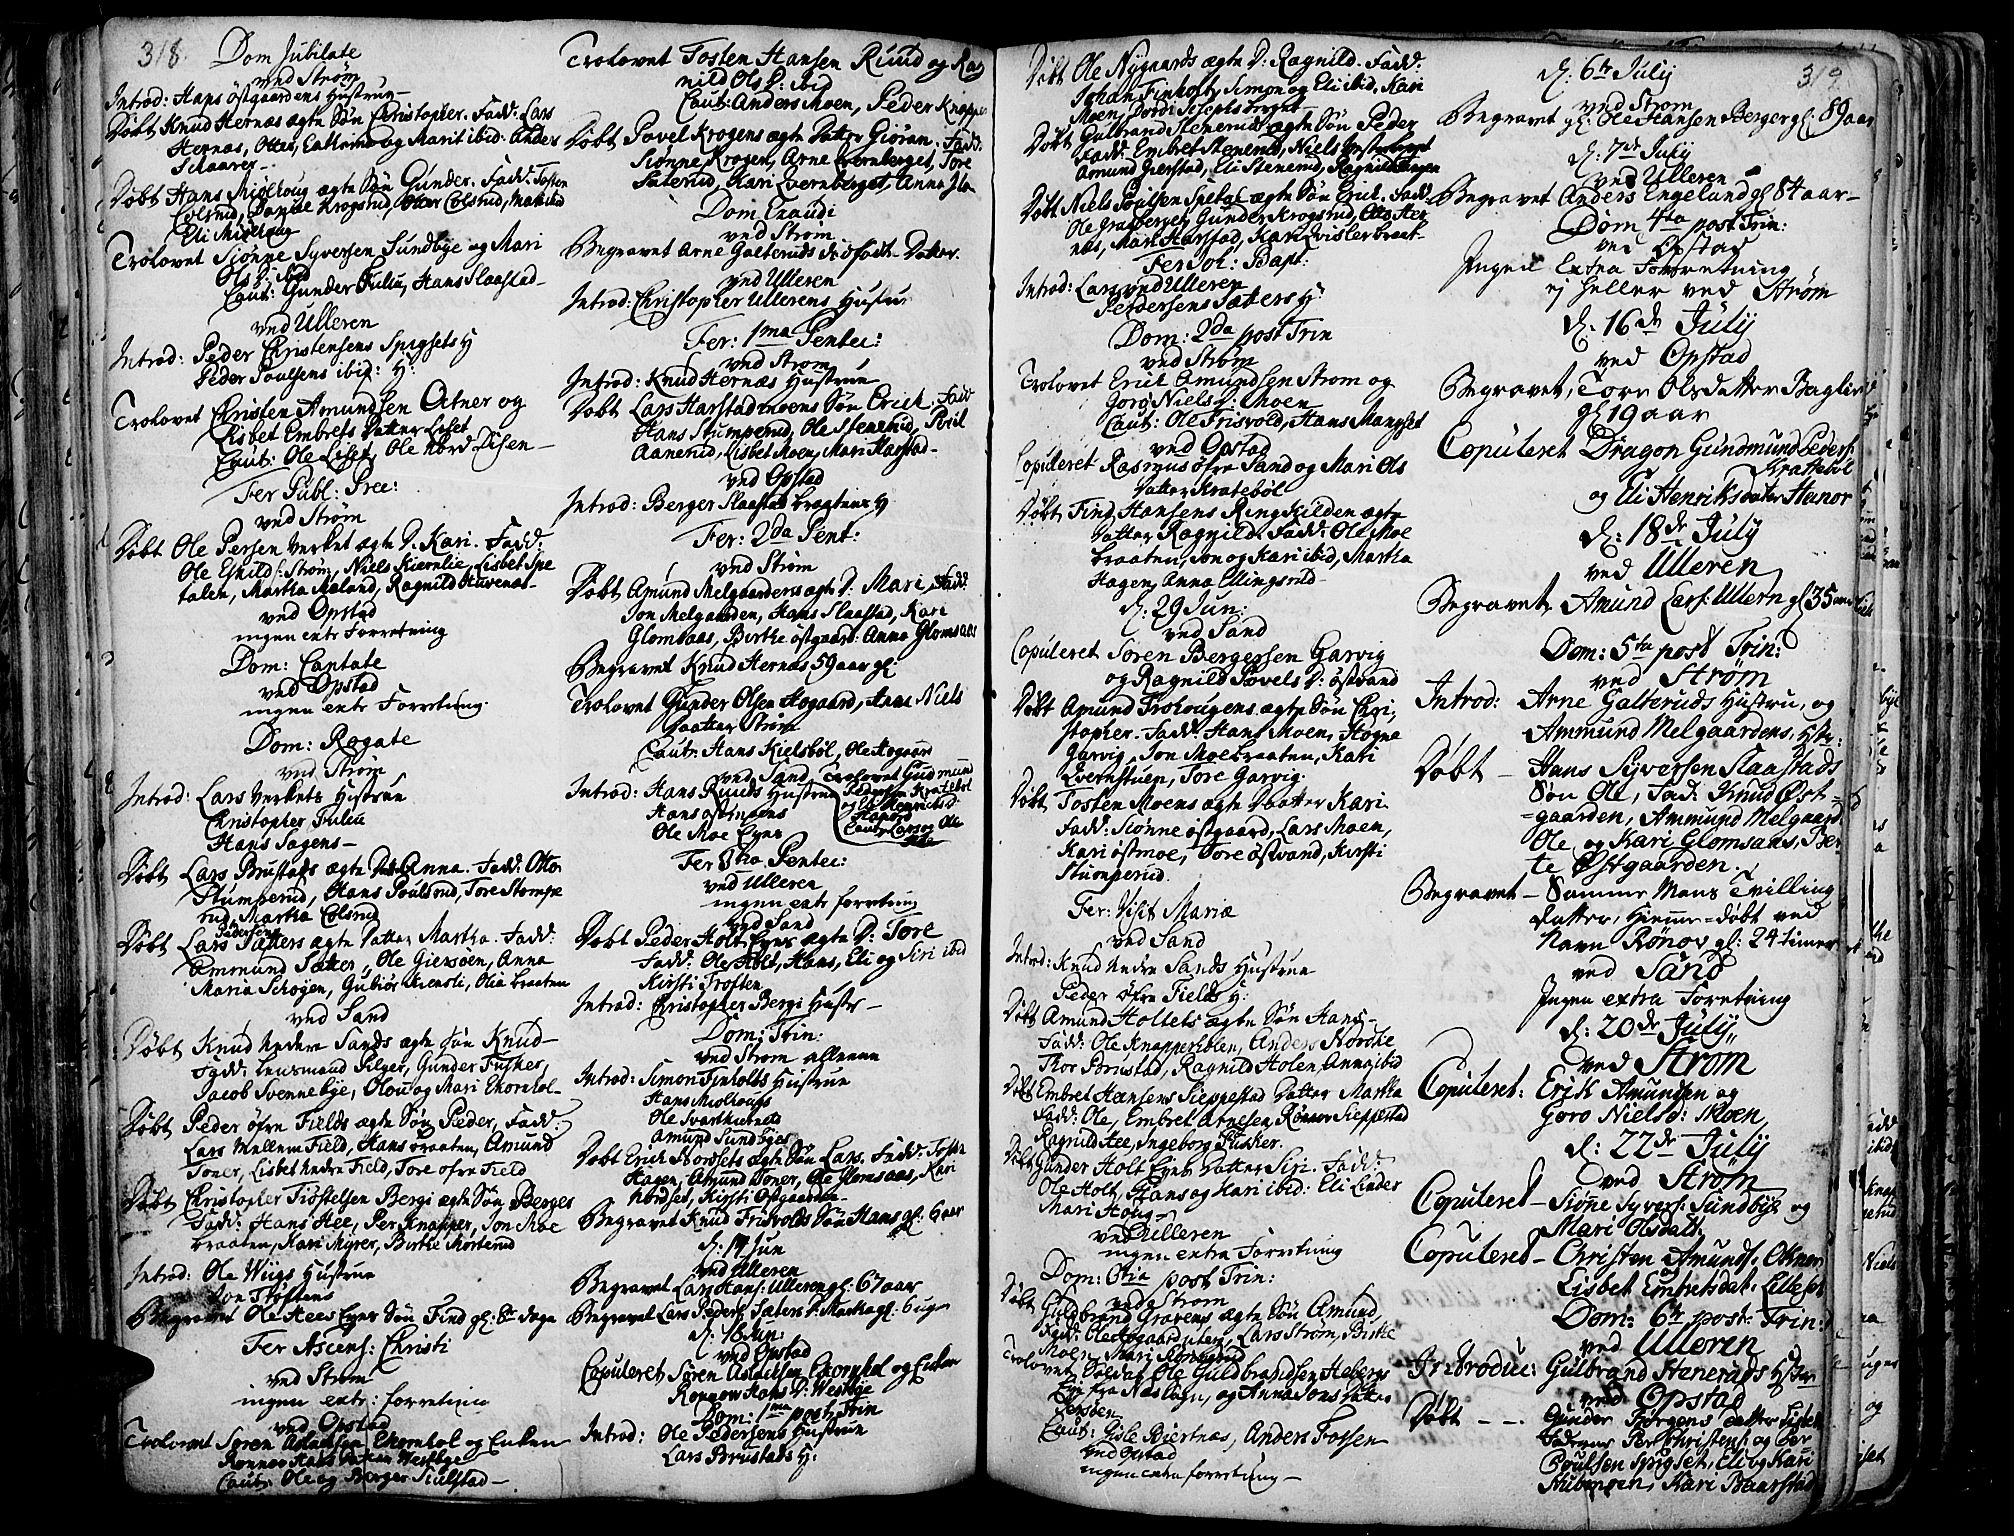 318.
Dom Jubilate
ved Strøm
Introd: Hans Østgaardens Hustrue
Døbt Knud Hernæs ægte Søn Christopher. Fadd: Lars
Hernæs, Otter, Cathrina og Marit ibid: Anders
Schaarer
Døbt Hans Miølhoug ægte Søn Gunder. Fadd: Tosten
Colsrud, Daniel Krogsrud, Otter Colsrud,
Eli Miølhoug
Trolovet Siønne Syversen Sundbye og Mari
Ols D: ibid
Caut: Gunder Fulu, Hans Slaastad
ved Ulleren
Introd: Peder Christensens Spigsets H
Peder Poulsens ibid: H:
Trolovet Christen Amundsen Otner og
Lisbet Embrets Datter Liset
Caut: Ole Liset, Ole Nord Disen
Fer Publ: Prec:
ved Strøm
Døbt Ole Persen Verket ægte D: Kari. Fadd:
Ole Eskilds: Strøm, Niels Kiernlie, Lisbet Spe
talen, Martha Moland, Ragnild
ved Opstad
ingen extr Forretning
Dom: Cantate
ved Opstad
ingen extr Forretning.
Dom: Rogate
ved Strøm
Introd: Lars Verkets Hustrue
Christopher Fulu
Hans Sagens
Døbt Lars Brustads ægte D: Anna. Fadd: Otto
Stumperud, Hans Poulsrud, Tore Stumpe
rud, Martha Colsrud
Døbt Lars Pedersens Sætters ægte Datter Martha. Fadd:
Ammund Sætter, Ole Giersøen, Anna
Maria Schogen, Gubiør Kiensli, Olia Braaten
ved Sand
Døbt Knud Nedre Sands ægte Søn Knud
Fadd: Lensmand Pilger, Gunder Fusker,
Jacob Svennebye, Olou og Mari Ekornhol
Døbt Peder Øfre Fields ægte Søn Peder, Fadd:
Lars Mellem Field, Hans Braaten, Amund
Toner, Lisbet Nedre Field, Tore Øfre Field
Døbt Christopher Tiøstelsen Bergi ægte Søn Berger
Fadd: Hans Hee, Per Knapper, Jon Moe
braaten, Kari Myrer, Birthe Morterud
Introd: Ole Wiigs Hustrue
Jon Trøftens
Begravet Ole Hees Eyer Søn Find gl: 8te Dage
Fer Ascens: Christi
ved Strøm
ingen extr: forretning
ved Opstad
Trolovet Søren Asladsen Ekornhol og Enken
Rønnov Hans Datter Westbye
Caut: Ole og Berger Siulstad
Trolovet Tosten Hansen Ruud og Rag
nild Ols D: ibid
Caut: Anders Moen, Peder Knapper
Døbt Povel Krogens ægte Datter Giøran. Fadd:
Siønne Krogen, Arne Qvernberget, Tore
Saterud, Kari Qvernberget, Anna
Dom Exaudi
ved Strøm
Begravet Arne Galteruds dødfødte Datter.
ved Ulleren
Introd: Christopher Ullerens Hustru
Fer: 1ma Pentec:
ved Strøm
Introd: Knud Hernæs Hustrue
Døbt Lars Harstadmoens Søn Erich. Fadd
Hans Stumperud, Ole Stenerud, Povil
Aanerud, Lisbet Moen, Mari Harstad
ved Opstad
Introd: Berger Slaastad bragtens H
Fer: 2da Pent:
ved Strøm
Døbt Amund Melgaardens ægte D: Mari. Fadd:
Jon Melgaarden, Hans Slaastad, Kari
Glomsaas, Birthe Østgaard. Anna Glomsaas
Begravet Knud Hernæs 59 aar gl:
Trolovet Gunder Olsen Aogaard, Anne Niels
Daatter Strøm
Caut: Hans Kielsbøl, Ole Aogaard
ved Sand
Introd: Hans Ruuds Hustrue
Hans Østmoens
Ole Moe Eyer
Trolovet Gudmund
Pedersen Kratebøl
og Eli Henrichsd:
Hanord
Caut: Larses Ole
Fer 3tia Pentec:
ved Ulleren
ingen extr forretning
ved Sand
Døbt Peder Holt Eyer ægte D: Tore
Fadd: Ole Holt, Hans, Eli og Siri ibid
Kirsti Trøften
Introd: Christopher Bergi Hustr
Dom: Trin:
ved Strøm allene
Introd: Simon Finholdts Hustrue
Hans Miølhougs
Ole Svarthuuseid
Amund Sundbyes
Døbt Erich Nordsets ægte Søn Lars. Fadd: Tosten
Hagen, Amund Toner, Ole Glomsaas, Kari
Nordset, Kirsti Østgaarden
Begravet Knud Frisvolds Søn Hans gl: 6 aar
d: 14 Jun
ved Ulleren
Begravet Lars Hans: Ulleren gl: 67 aar
Begravet Lars Peders: Sæters D: Martha gl: 6 uger
d: 18 Jun:
ved Opstad
Copuleret Søren Asladsen Ekornhol og Enken
Rønnow Hans D: Westbye
Dom: 1ma post Trin
Introd: Ole Pedersens Hustrue
Lars Brustads H:
Døbt Ole Nygaards ægte D: Ragnild. Fadd:
Johan Finholt, Simon og Eli ibid, Kari
Moen, Dordi Josephsberget
Døbt Gulbrand Stenerud ægte Søn Peder
Fadd: Embret Stenerud, Niels
Amund Gierstad, Eli Stenerud, Ragnild Hagen
Døbt Niels Poulsen Spetal ægte Søn Erich. Fadd:
Ole Grasberget, Gunder Krogsrud, Otto Her
næs, Mari Harstad, Kari Qvislerbraat
Fer Joh: Bapt:
ved Ulleren
Introd: Lars
Pedersens Sætters H:
Dom: 2da post Trin
ved Strøm
Trolovet Erich Amundsen Strøm og
Gorø Niels D: Moen
Caut: Ole Frisvold, Hans Mangset
ved Opstad
Copuleret Rasmus Øfre Sand og Mari Ols
Datter Kratebøl
Døbt Find Hansens Ringkilden ægte
Datter Ragnild. Fadd: Ole Moe
braaten, Jon og Kari ibid, Martha
Hagen, Anna Ellingsrud
d: 29 Jun:
ved Sand
Copuleret Søren Bergersen Garvig
og Ragnild Povels D: Østvand
Døbt Amund Froshougens ægte Søn Chri,
stopher. Fadd: Hans Moen, Hogne
Garvig, Jon Moebraaten, Kari
Qvernstuen, Tore Garvig.
Døbt Tosten Moens ægte Daatter Kari
Fadd: Siønne Østgaard, Lars Moen,
Kari Østmoe, Tore Østvand, Kirsti
Stumperud.
Fer: Visit Mariæ
ved Sand
Introd: Knud Nedre Sands Hustrue
Peder Øfre Fields H:
Døbt Amund Holtets ægte Søn Hans
Fadd: Ole Knapperholen, Anders Nordbe
Thor Brustad, Ragnild Holen Anna ibid
Døbt Embret Hansens Sieppestad Datter Martha
Fadd: Ole, Embret Arnesen, Rønnov Sieppestad
Ragnild Hee, Ingeborg Fusker.
Døbt Gunder Holt Eyer Datter Siri. Fadd:
Ole Holt, Hans og Kari ibid: Eli Linder
Mari Houg
ved Ulleren
ingen extra Forretning
Dom: 3tia post Trin:
ved Strøm
Døbt Guldbrand Gravens ægte Søn Amund,
Fadd: Ole Aogaard uter, Lars Strøm, Birthe
Moen, Mari
Trolovet Soldat Ole Guldbrandsen Aabergs
Eye fra Næs Sogn, og Anna Jons Datter
Persøen
Caut: Gisle Biertnæs, Anders Fossen
ved Opstad
ingen extra forretning
319
d: 6te July
ved Strøm
Begravet gl: Ole Hansen Berger gl: 89 aar
d: 7de July
ved Ulleren
Begravet Anders Engeland gl 84 aar
Dom 4ta post Trin:
ved Opstad
Ingen Extra Forretning
ej heller ved Strøm
d: 16de July
ved Opstad
Begravet, Tore Olsdatter Baglerud
gl 19 aar
Copuleret Dragon Gundmund Peders:
Krattebøl
og Eli Henriksdatter Hanor
d: 18de July
ved Ulleren
Begravet Amund Lars: Ullern gl 35 aar
Dom: 5ta post Trin:
ved Strøm
Introd: Arne Galteruds Hustru, og
Ammund Melgaardens, Hstr:
Døbt Hans Syversen Slaastads
Søn Ole, Fad: Knud Øst=
=gaarden, Ammund Melgaard
Ole og Kari Glomsaas, Ber=
te Østgaarden.
Begravet Samme Mans Tvilling
Datter, Hiemme=døbt ved
Navn Rønov gl: 24 timer
ved Sand
Ingen extra Foretning
d: 20de July
ved Strøm
Copuleret: Erik Amundsen og
Goro Nielsd: Moen,
d: 22de July
ved Strøm
Copuleret Siøne Syvers: Sundbye og
Mari Olsdatt.
Copuleret Christen Amunds: Otner
og
Lisbet Embretsdat: Lilleset
Dom: 6te post: Trin:
ved Ulleren
Introduc: Gulbrand Steneruds Hstr:
ved Opstad
Døbt Gunder Børgens datter Lisbet
Faderne Per Christens: og Per
Poulsen Spigset, Eli og Kari
Huborgen, Kari Baarstad